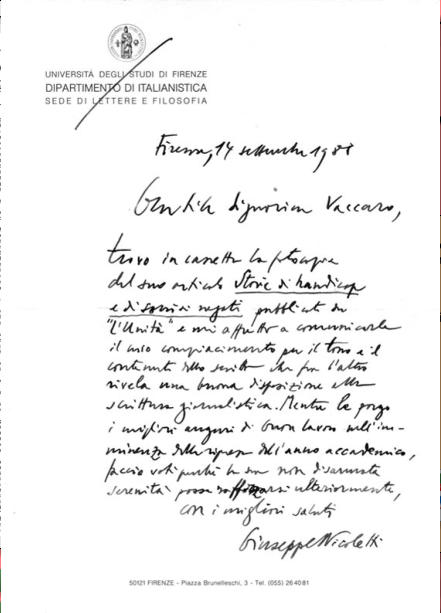 UNIVERSITÀ DEGLI STUDI DI FIRENZE
DIPARTIMENTO DI ITALIANISTICA
SEDE DI LETTERE E FILOSOFIA
Firenze, 14 settembre 1988
Gentile Signorina Vaccaro,
trovo in cassetta la fotocopia
del suo articolo Storie di handicap
e di sorrisi negati pubblicato su
"l'Unità" e mi affretto a comunicarle
il mio compiacimento per il tono e il
contenuto dello scritto che fra l'altro
rivela una buona disposizione alla
scrittura giornalistica. Mentre le porgo
i migliori auguri di buon lavoro nell'im-
minenza della ripresa dell'anno accademico,
faccio voti perché la sua non disarmata
serenità possa rafforzarsi ulteriormente,
con i migliori saluti
Giuseppe Nicoletti
50121 FIRENZE - Piazza Brunelleschi, 3 - Tel. (055) 264081